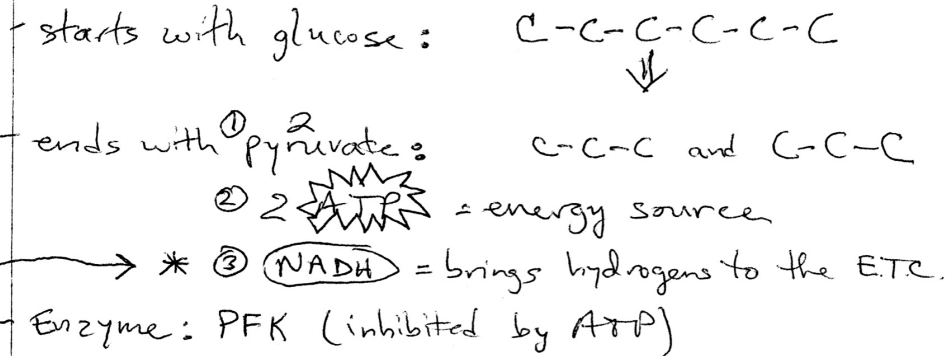 - starts with glucose: C-C-C-C-C-C
⇓
- ends with ① 2 pyruvate: C-C-C and C-C-C
② 2 ATP = energy source
→ * ③ NADH = brings hydrogens to the E.T.C.
- Enzyme: PFK (inhibited by ATP)